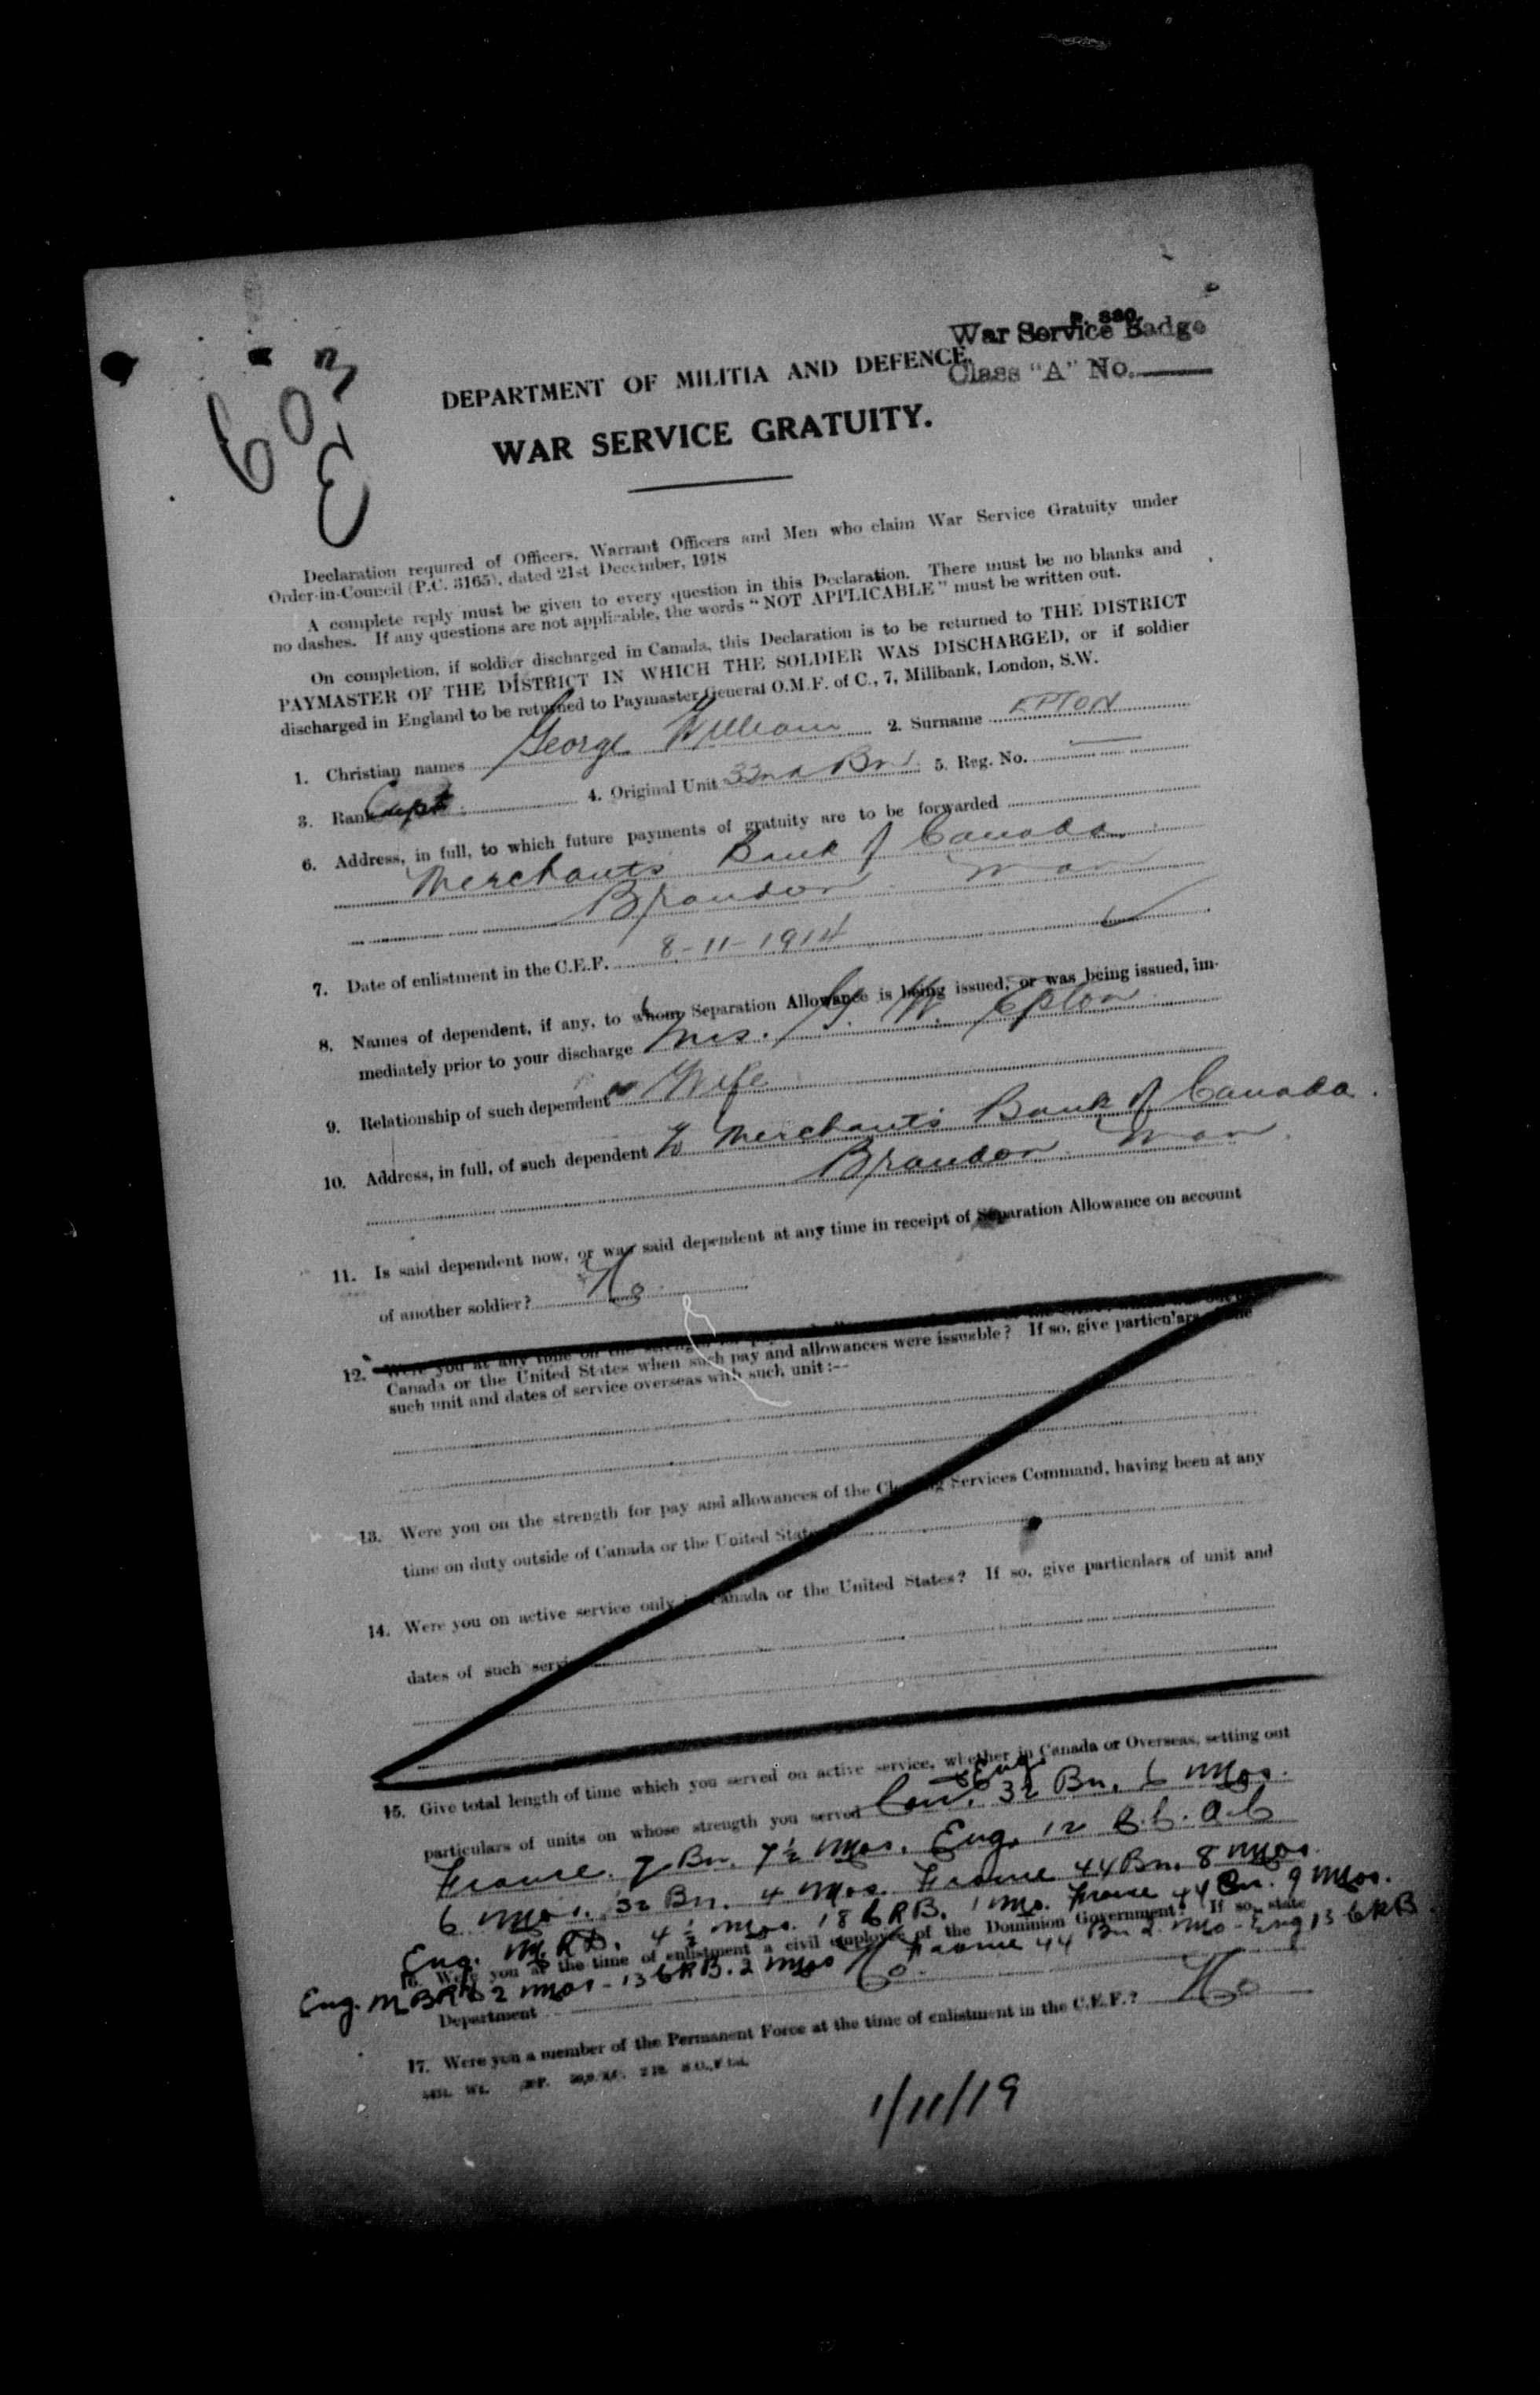 603
E
P. 880.
War Service Badge
Class "A" No.
DEPARTMENT OF MILITIA AND DEFENCE.
WAR SERVICE GRATUITY.
Declaration required of Officers, Warrant Officers and Men who claim War Service Gratuity under
Order-in-Council (P.C. 3165), dated 21st December, 1918
A complete reply must be given to every question in this Declaration. There must be no blanks and
no dashes. If any questions are not applicable, the words "NOT APPLICABLE" must be written out.
On completion, if soldier discharged in Canada, this Declaration is to be returned to THE DISTRICT
PAYMASTER OF THE DISTRICT IN WHICH THE SOLDIER WAS DISCHARGED, or if soldier
discharged in England to be returned to Paymaster General O.M.F. of C., 7, Millbank, London, S.W.
1. Christian names George William 2. Surname EPTON
3. Rank Capt. 4. Original Unit 32nd Bn 5. Reg. No.
6. Address, in full, to which future payments of gratuity are to be forwarded
Merchants Bank of Canada.
Brandon Man
7. Date of enlistment in the C.E.F. 8-11-1914
8. Names of dependent, if any, to whom Separation Allowance is being issued, or was being issued, im-
mediately prior to your discharge Mrs. G. W. Epton
9. Relationship of such dependent Wife
10. Address, in full, of such dependent Merchants Bank of Canada.
Brandon Man.
11. Is said dependent now, or was said dependent at any time in receipt of Separation Allowance on account
of another soldier? No
12. Were you at any time on the strength
Canada or the United States when such pay and allowances were issuable? If so, give particulars
such unit and dates of service overseas with such unit:--
13. Were you on the strength for pay and allowances of the Clearing Services Command, having been at any
time on duty outside of Canada or the United States
14. Were you on active service only in Canada or the United States? If so, give particulars of unit and
dates of such service
15. Give total length of time which you served on active service, whether in Canada or Overseas, setting out
particulars of units on whose strength you served Can. & Eng. 32 Bn. 6 Mos.
France. 7 Bn. 7½ Mos. Eng. 12
6 Mos. 32 Bn. 4 Mos. France 44 Bn. 8 Mos.
Eng. M.R.D. 4½ Mos. 18 C R B. 1 Mo. France 44 Bn. 9 Mos.
16. Were you at the time of enlistment a civil employee of the Dominion Government? If so, state
France 44 Bn 2 Mo - Eng 13 C R B
Eng. 2 Mos - 13 C R B. 2 Mos
Department No.
17. Were you a member of the Permanent Force at the time of enlistment in the C.E.F.? No
1/11/19